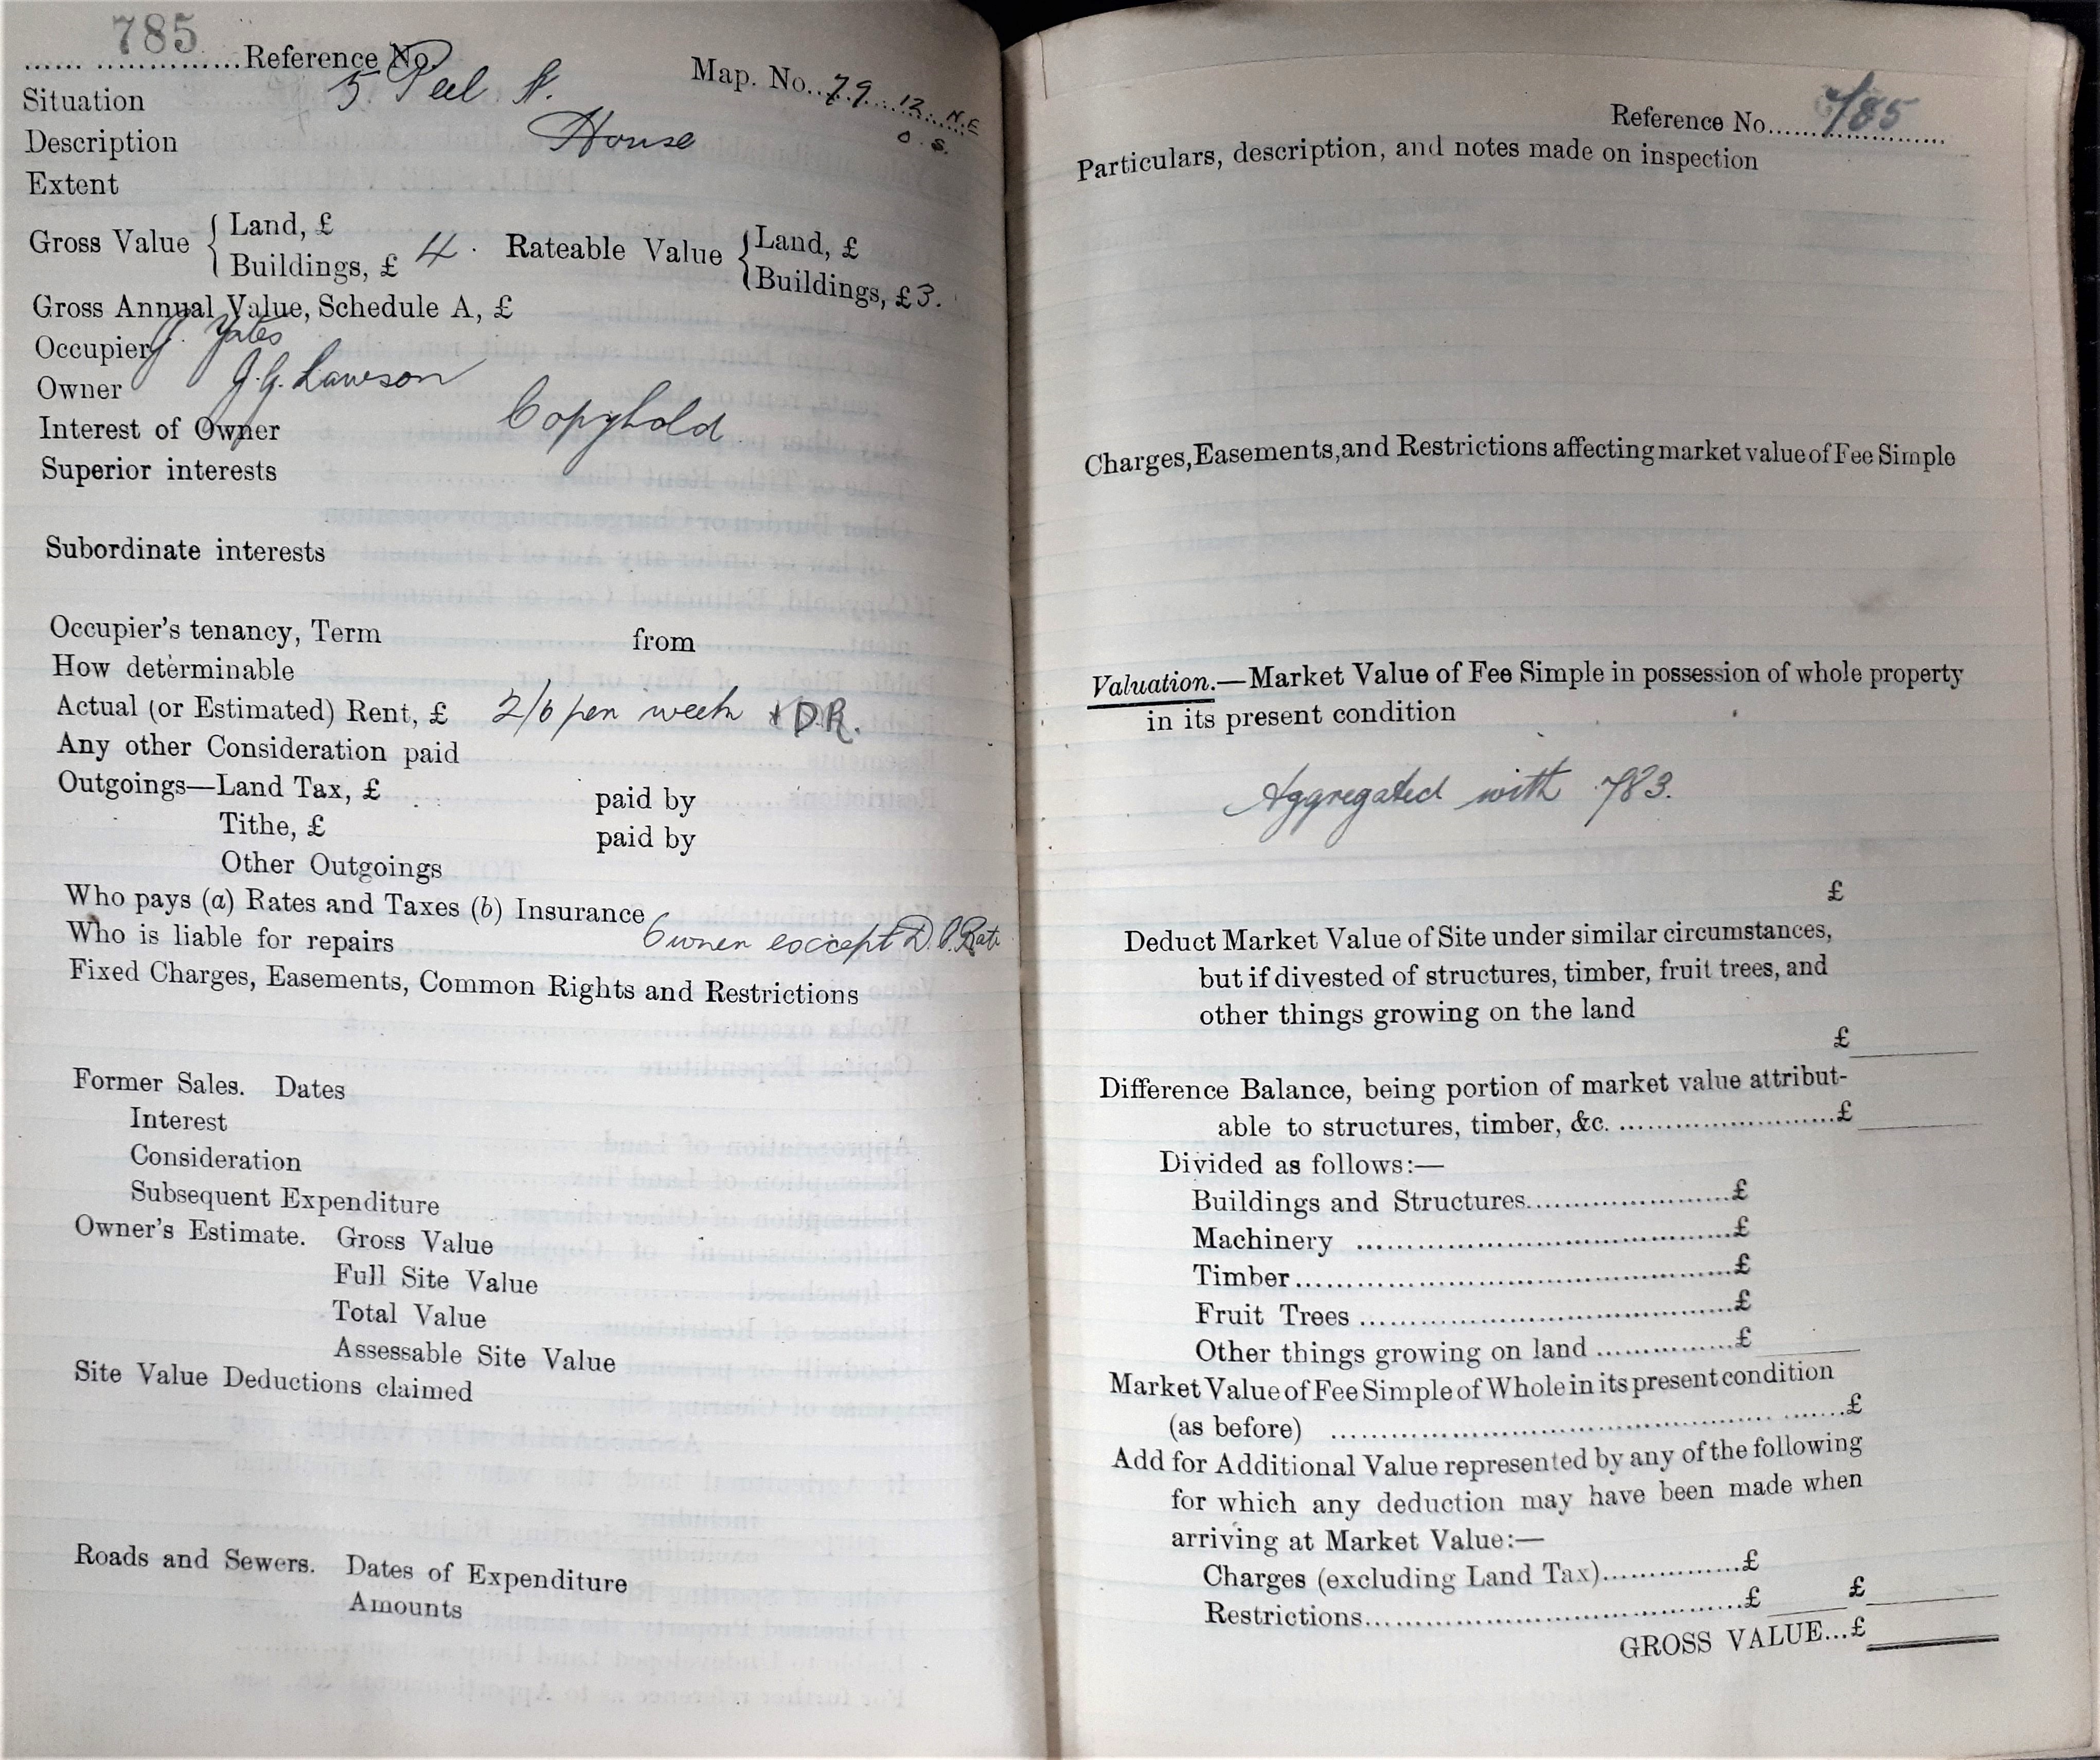 785
...... ..............Reference No.
Map. No. 79 12 N.E
O. S.
Situation 5 Peel St.
Description House
Extent
Gross Value { Land, £
Buildings, £ 4. Rateable Value { Land, £
Buildings, £ 3.
Gross Annual Value, Schedule A, £
Occupier J. Yates
Owner J.G. Lawson
Interest of Owner Copyhold
Superior interests
Subordinate interests
Occupier's tenancy, Term from
How determinable
Actual (or Estimated) Rent, £ 2/6 per week + D.R.
Any other Consideration paid
Outgoings—Land Tax, £ paid by
Tithe, £ paid by
Other Outgoings
Who pays (a) Rates and Taxes (b) Insurance
Who is liable for repairs Owner except D. Rate
Fixed Charges, Easements, Common Rights and Restrictions
Former Sales. Dates
Interest
Consideration
Subsequent Expenditure
Owner's Estimate. Gross Value
Full Site Value
Total Value
Assessable Site Value
Site Value Deductions claimed
Roads and Sewers. Dates of Expenditure
Amounts
Reference No. 785
Particulars, description, and notes made on inspection
Charges, Easements, and Restrictions affecting market value of Fee Simple
Valuation.—Market Value of Fee Simple in possession of whole property
in its present condition
Aggregated with 783.
£
Deduct Market Value of Site under similar circumstances,
but if divested of structures, timber, fruit trees, and
other things growing on the land
£
Difference Balance, being portion of market value attribut-
able to structures, timber, &c. ..............................£
Divided as follows:—
Buildings and Structures..............................£
Machinery ..............................£
Timber..............................£
Fruit Trees ..............................£
Other things growing on land ...............£
Market Value of Fee Simple of Whole in its present condition
(as before) ..............................£
Add for Additional Value represented by any of the following
for which any deduction may have been made when
arriving at Market Value:—
Charges (excluding Land Tax)...............£
Restrictions..............................£ £
GROSS VALUE...£